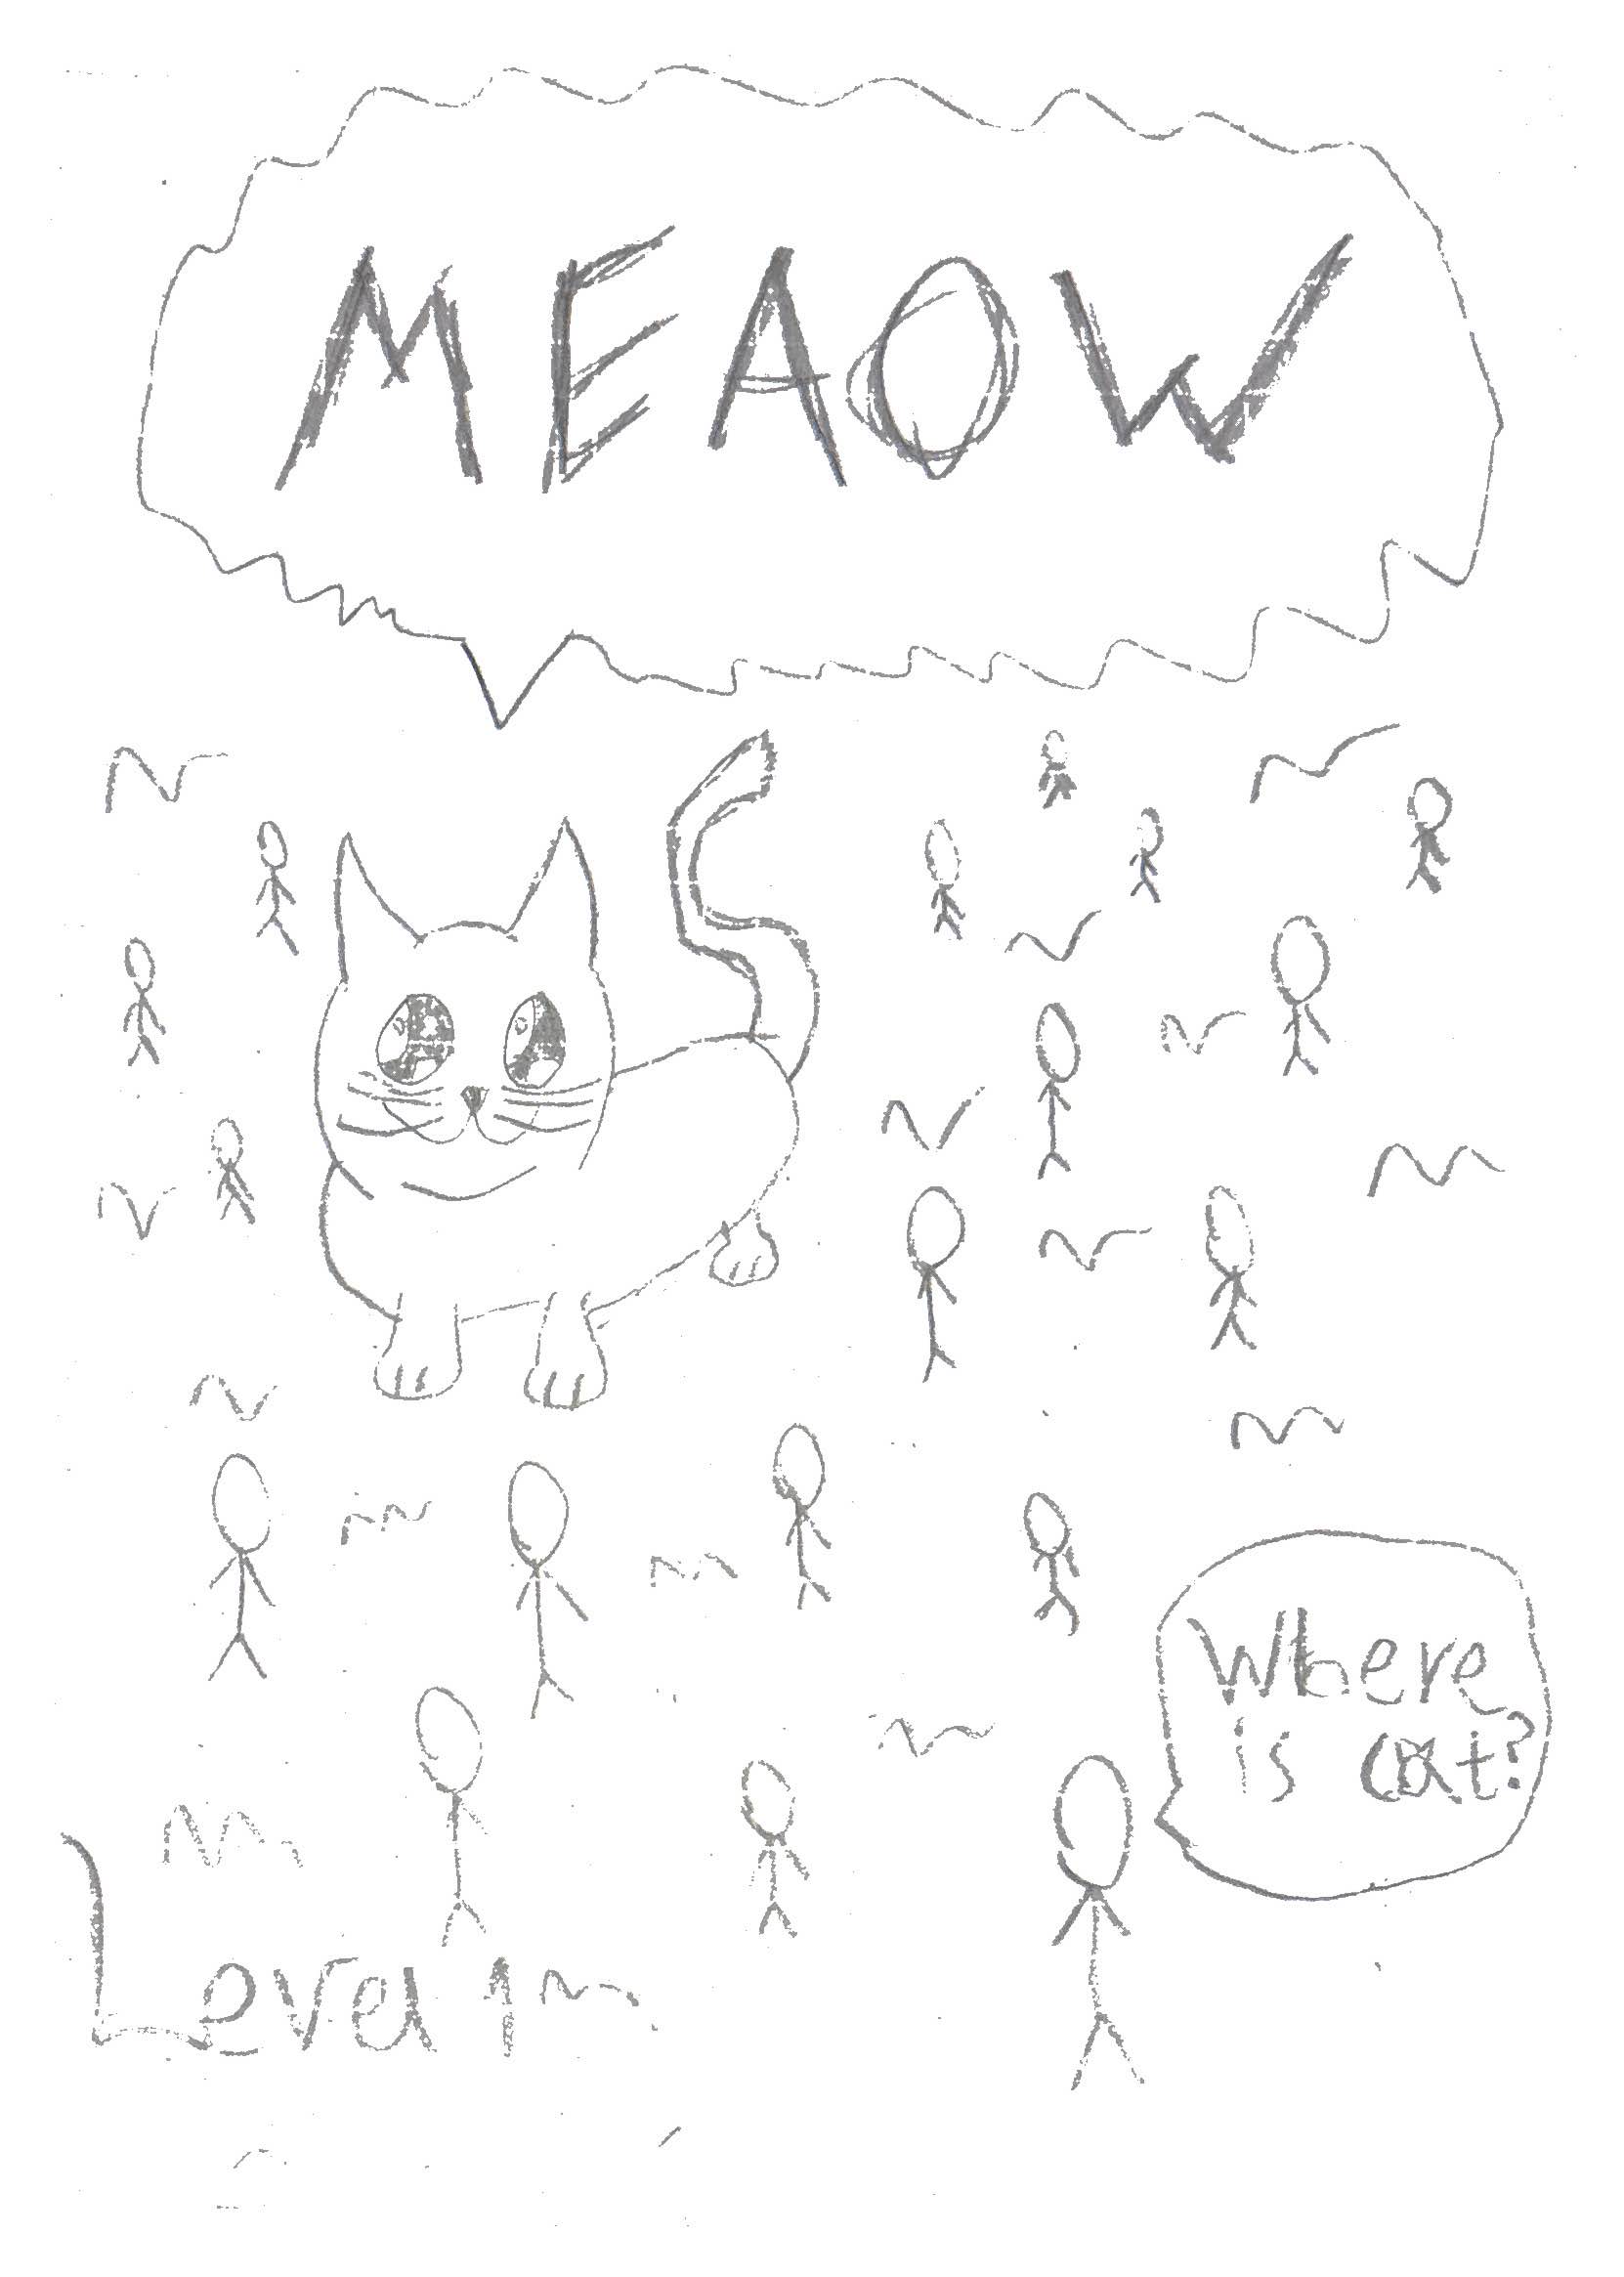 MEAOW
Where
is cat?
Level 1